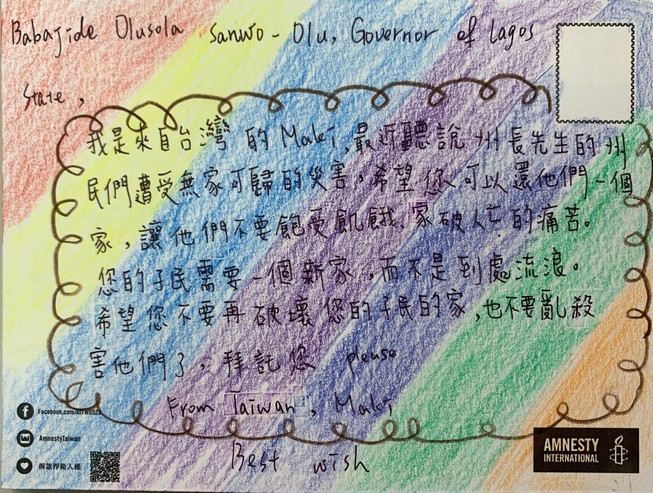 Babajide Olusola Sanwo-Olu, Governor of Lagos
State,
我是來自台灣的Maki,最近聽說州長先生的州
民們遭受無家可歸的災害。希望您可以還他們一個
家,讓他們不要飽受飢餓、家破人亡的痛苦。
您的子民需要一個新家,而不是到處流浪。
希望您不要再破壞您的子民的家,也不要亂殺
害他們了,拜託您 please
From Taiwan, Maki
Best wish
AmnestyTaiwan
捐款捍衛人權
AMNESTY
INTERNATIONAL